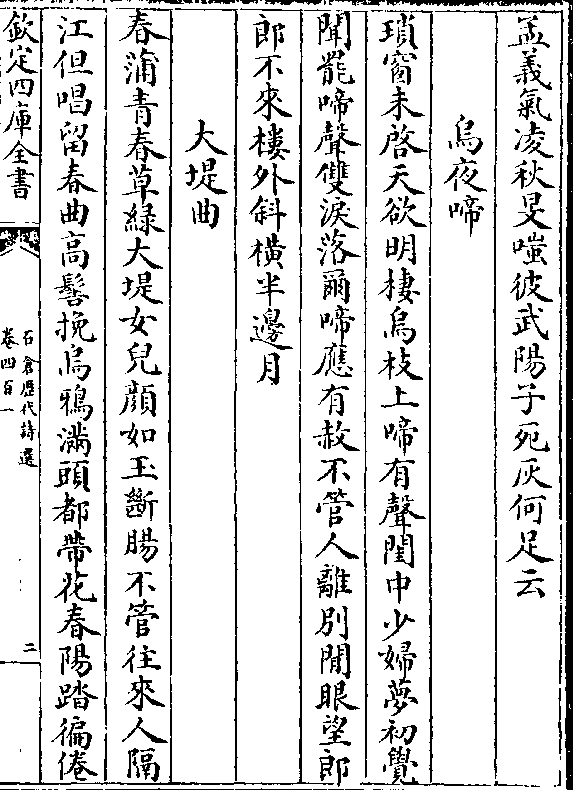 孟義氣凌秋旻嗤彼武陽子死灰何足云
烏夜啼
瑣窗未啓天欲明棲烏枝上啼有聲閨中少婦夢初覺
聞罷啼聲雙淚落爾啼應有赦不管人離別閒眼望郎
郎不來樓外斜橫半邊月
大堤曲
春蒲青春草綠大堤女兒顔如玉斷腸不管往來人隔
江但唱留春曲高髻挽烏鴉滿頭都帶花春陽踏徧倦
欽定四庫全書
石倉歷代詩選
卷四百一
二